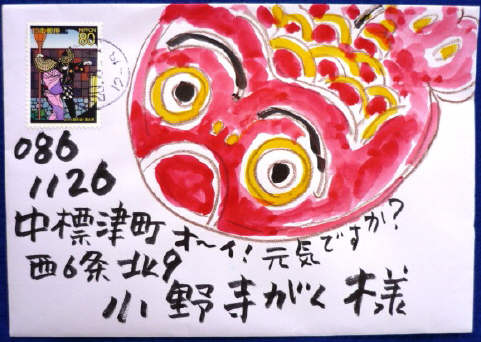 NIPPON 80
086
1126
中標津町
オ〜イ!元気ですか?
西6条北9
小野寺がく様